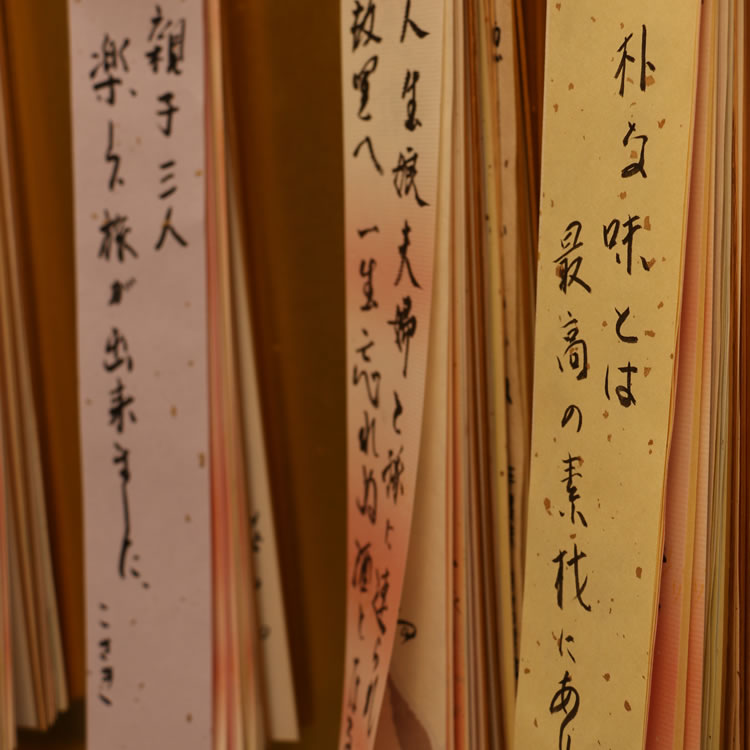 朴な味とは
最高の素材にあ
人生坂夫婦と旅に
故里へ一生忘れぬ
親子三人
楽しい旅が出来ました、
こさき